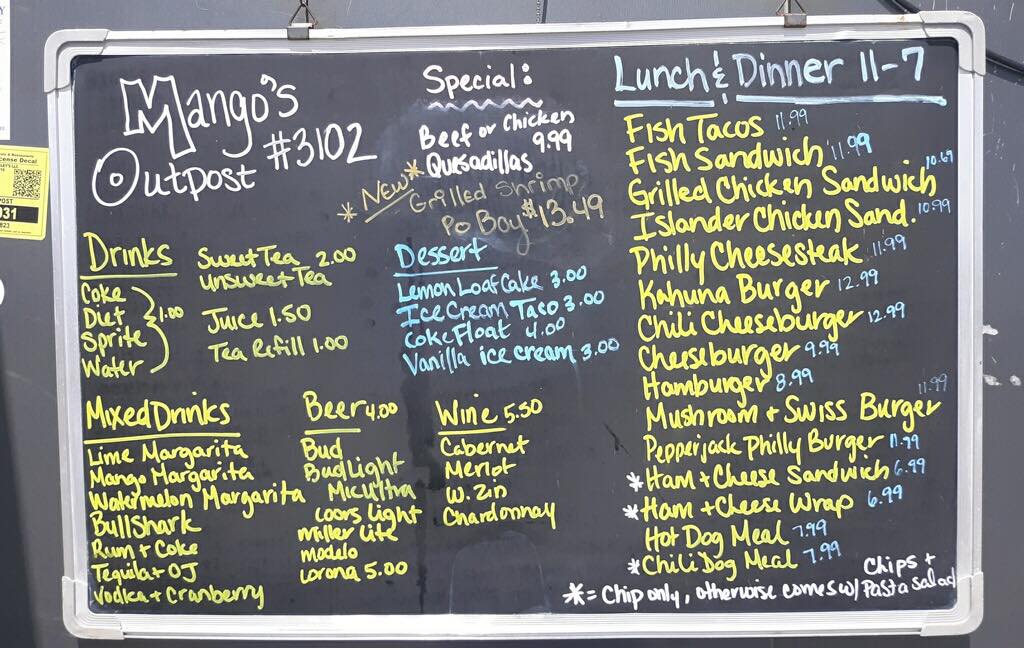 Mango's
Outpost #3102
Special:
Beef or Chicken 9.99
Quesadillas
* NEW* Grilled Shrimp
Po Boy $13.49
Drinks
Coke
Diet
Sprite
Water
1.00
Sweet Tea 2.00
Unsweet Tea
Juice 1.50
Tea Refill 1.00
Dessert
Lemon Loaf Cake 3.00
Ice Cream Taco 3.00
Coke Float 4.00
Vanilla ice cream 3.00
Mixed Drinks
Lime Margarita
Mango Margarita
Watermelon Margarita
BullShark
Rum + Coke
Tequila + OJ
Vodka + Cranberry
Beer 4.00
Bud
Bud Light
Mic Ultra
Coors Light
miller lite
modelo
corona 5.00
Wine 5.50
Cabernet
Merlot
W. Zin
Chardonnay
Lunch & Dinner 11-7
Fish Tacos 11.99
Fish Sandwich 11.99
Grilled Chicken Sandwich 10.69
Islander Chicken Sand. 10.99
Philly Cheesesteak 11.99
Kahuna Burger 12.99
Chili Cheeseburger 12.99
Cheeseburger 9.99
Hamburger 8.99
Mushroom + Swiss Burger 11.99
Pepperjack Philly Burger 11.99
* Ham + Cheese Sandwich 6.99
* Ham + Cheese Wrap 6.99
Hot Dog Meal 7.99
* Chili Dog Meal 7.99
* = Chip only, otherwise comes w/ Chips +
Pasta Salad